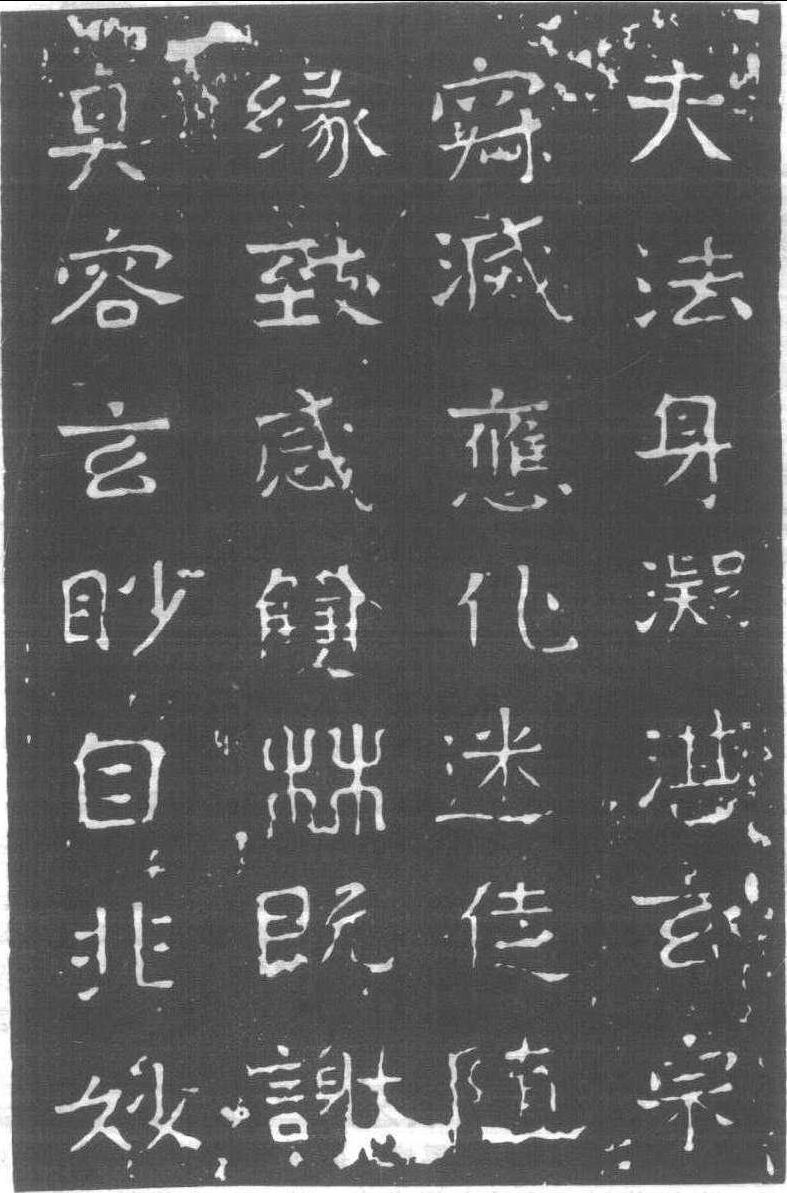 夫法身凝湛玄宗
滅應化迷徒随
緣致感雙林既謝
真容玄眇自非妙